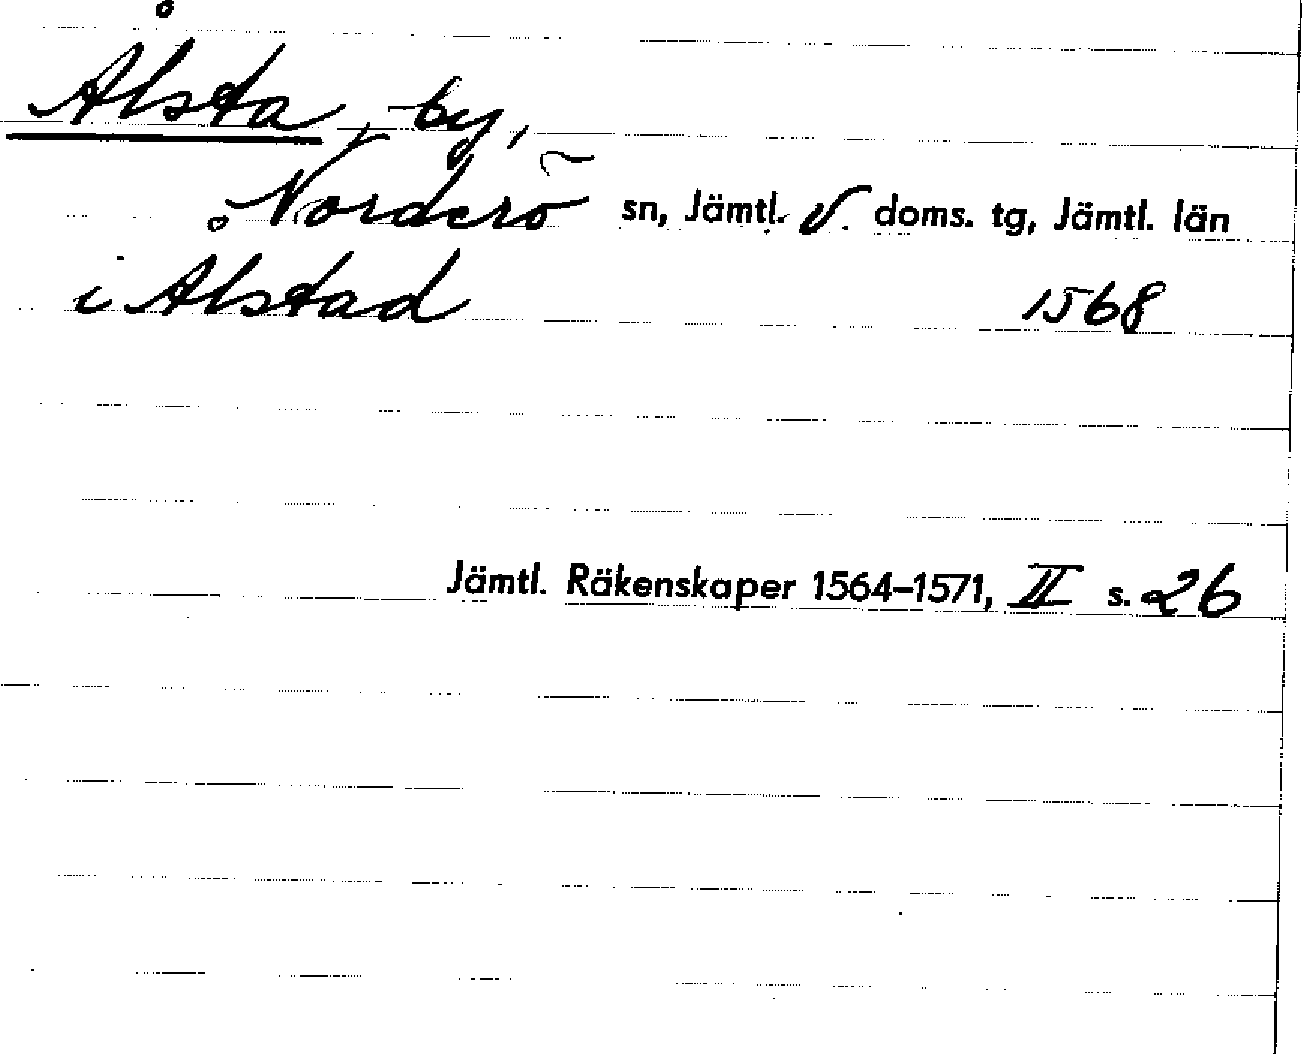 Ålsta, by,
Norderö sn, Jämtl. v. doms. tg, Jämtl. län
i Alstad 1568
Jämtl. Räkenskaper 1564–1571, II s. 26